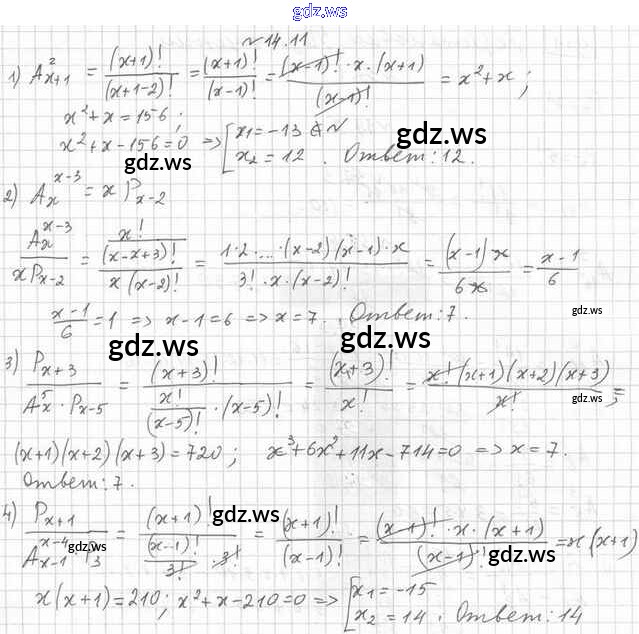 gdz.ws
№14.11
1) A²ₓ₊₁ = (x+1)!/(x+1-2)! = (x+1)!/(x-1)! = (x-1)!·x·(x+1)/(x-1)! = x²+x;
x²+x=156;
x²+x-156=0 => [x₁=-13 ∉ N
x₂=12. Ответ: 12.
gdz.ws
gdz.ws
2) Aₓˣ⁻³ = x Pₓ₋₂
Aₓˣ⁻³/(x Pₓ₋₂) = (x!/(x-x+3)!)/(x(x-2)!) = 1·2·...·(x-2)(x-1)·x/(3!·x·(x-2)!) = (x-1)x/6x = (x-1)/6
(x-1)/6 = 1 => x-1=6 => x=7. Ответ: 7.
gdz.ws
gdz.ws
gdz.ws
3) Pₓ₊₃/(A⁵ₓ·Pₓ₋₅) = (x+3)!/(x!/(x-5)!·(x-5)!) = (x+3)!/x! = x!(x+1)(x+2)(x+3)/x! =;
gdz.ws
(x+1)(x+2)(x+3)=720; x³+6x²+11x-714=0 => x=7.
Ответ: 7.
4) Pₓ₊₁/(Aₓ₋₁ˣ⁻⁴·P₃) = (x+1)!/((x-1)!/3!·3!) = (x+1)!/(x-1)! = (x-1)!·x·(x+1)/(x-1)! = x(x+1)
gdz.ws
gdz.ws
gdz.ws
x(x+1)=210; x²+x-210=0 => [x₁=-15
x₂=14. Ответ: 14